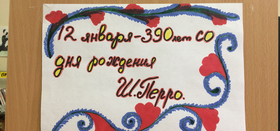 12 января-390 лет со
дня рождения
Ш.Перро.